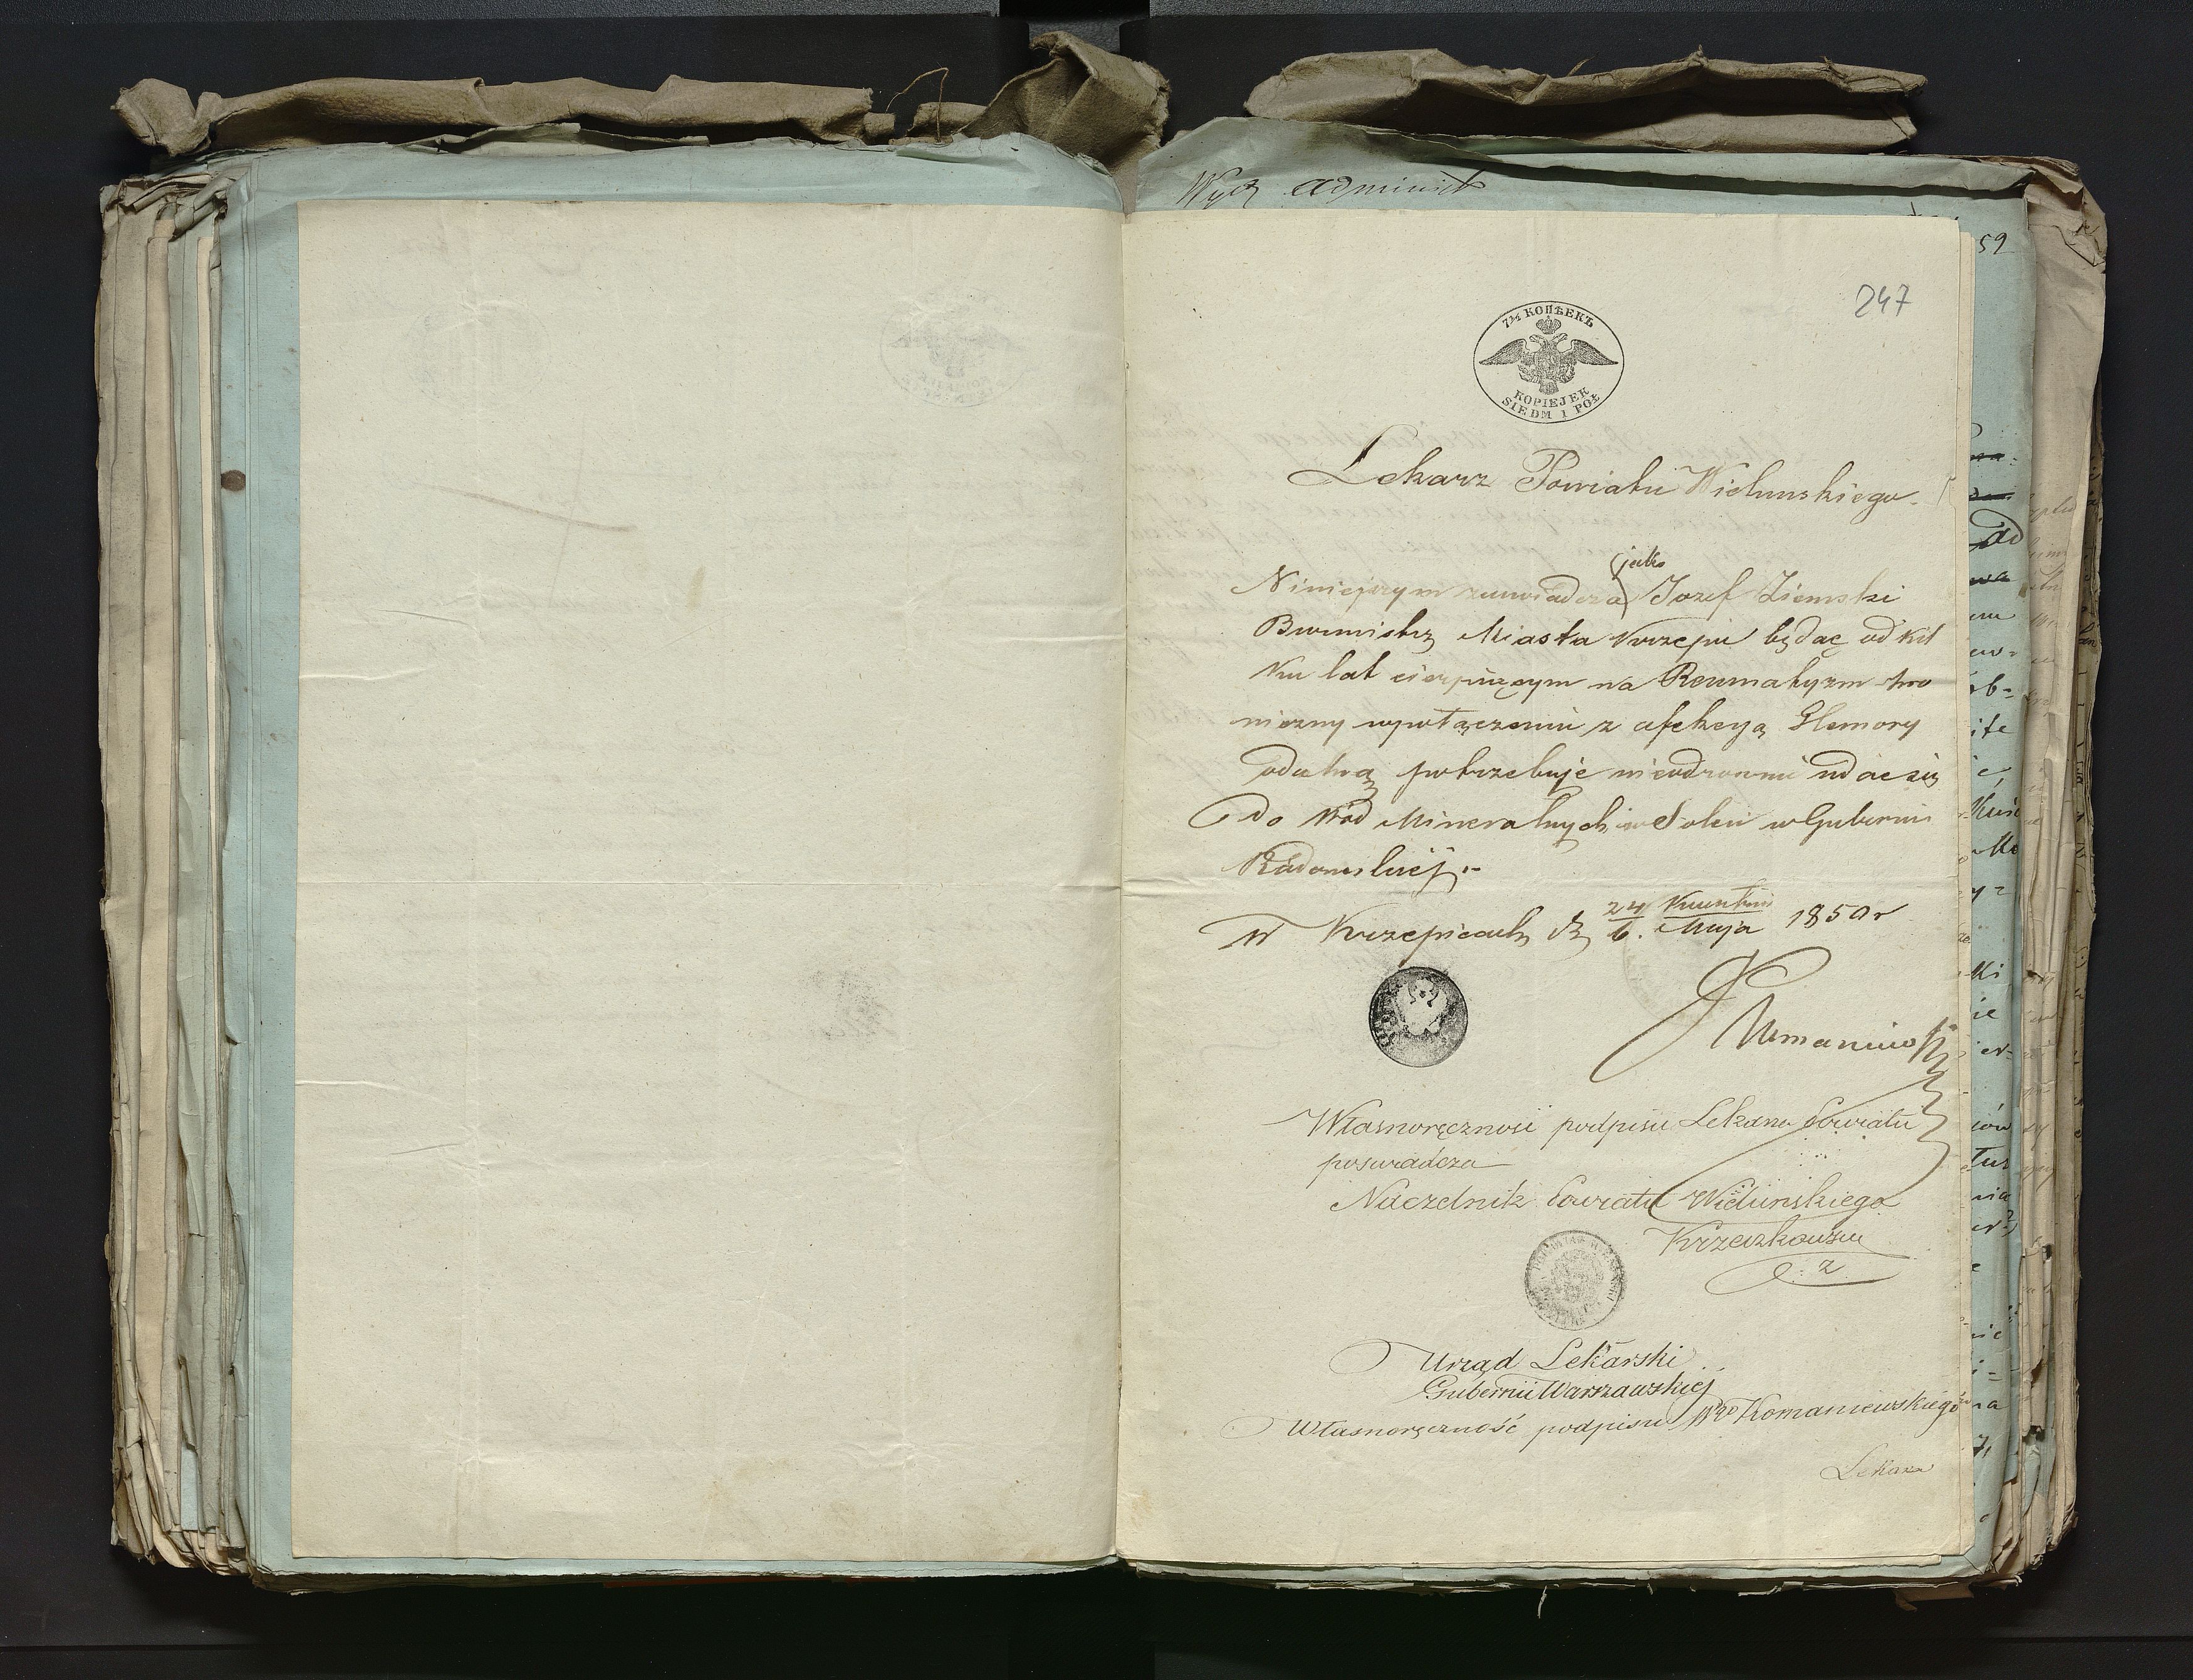 Wydz administ
59
247
7½ КОПѢЕКЪ
KOPIEJEK
SIEDM I PÓŁ
Lekarz Powiatu Wielunskiego
jako
Niniejszym zaswiadcza Jozef Ziemski
Burmistrz Miasta Krzepic będąc od kil
ku lat cierpiącym na Reumatyzm chro
niczny wpołączeniu z afekcyą Hemory
odalną potrzebuje nieodzownie udac się
do Wód Mineralnych w Solcu w Gubernii
Radomskiej.-
W Krzepicach d. 24/6. Kwietnia/Maja 1850 r
Własnoręcznosci podpisu Lekarza Powiatu
poswiadcza
Naczelnik Powiatu Wieluńskiego
Urząd Lekarski
Gubernii Warszawskiej
Własnoręczność podpisu Wgo Romaniewskiego
Lekarza